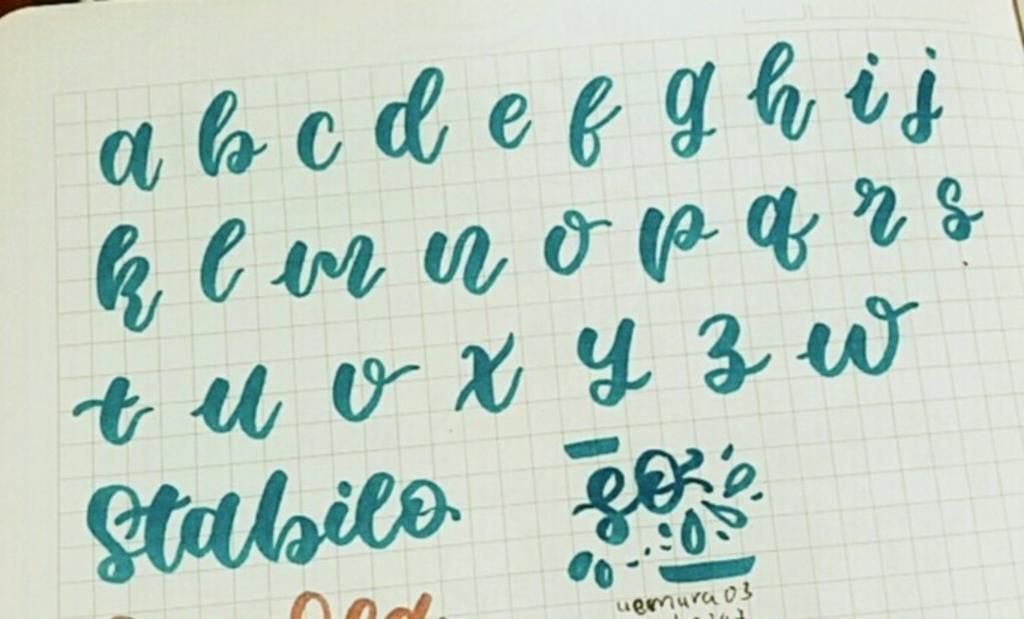 a b c d e f g h i j
k l m n o p q r s
t u v x y z w
Stabilo
so
uemura03